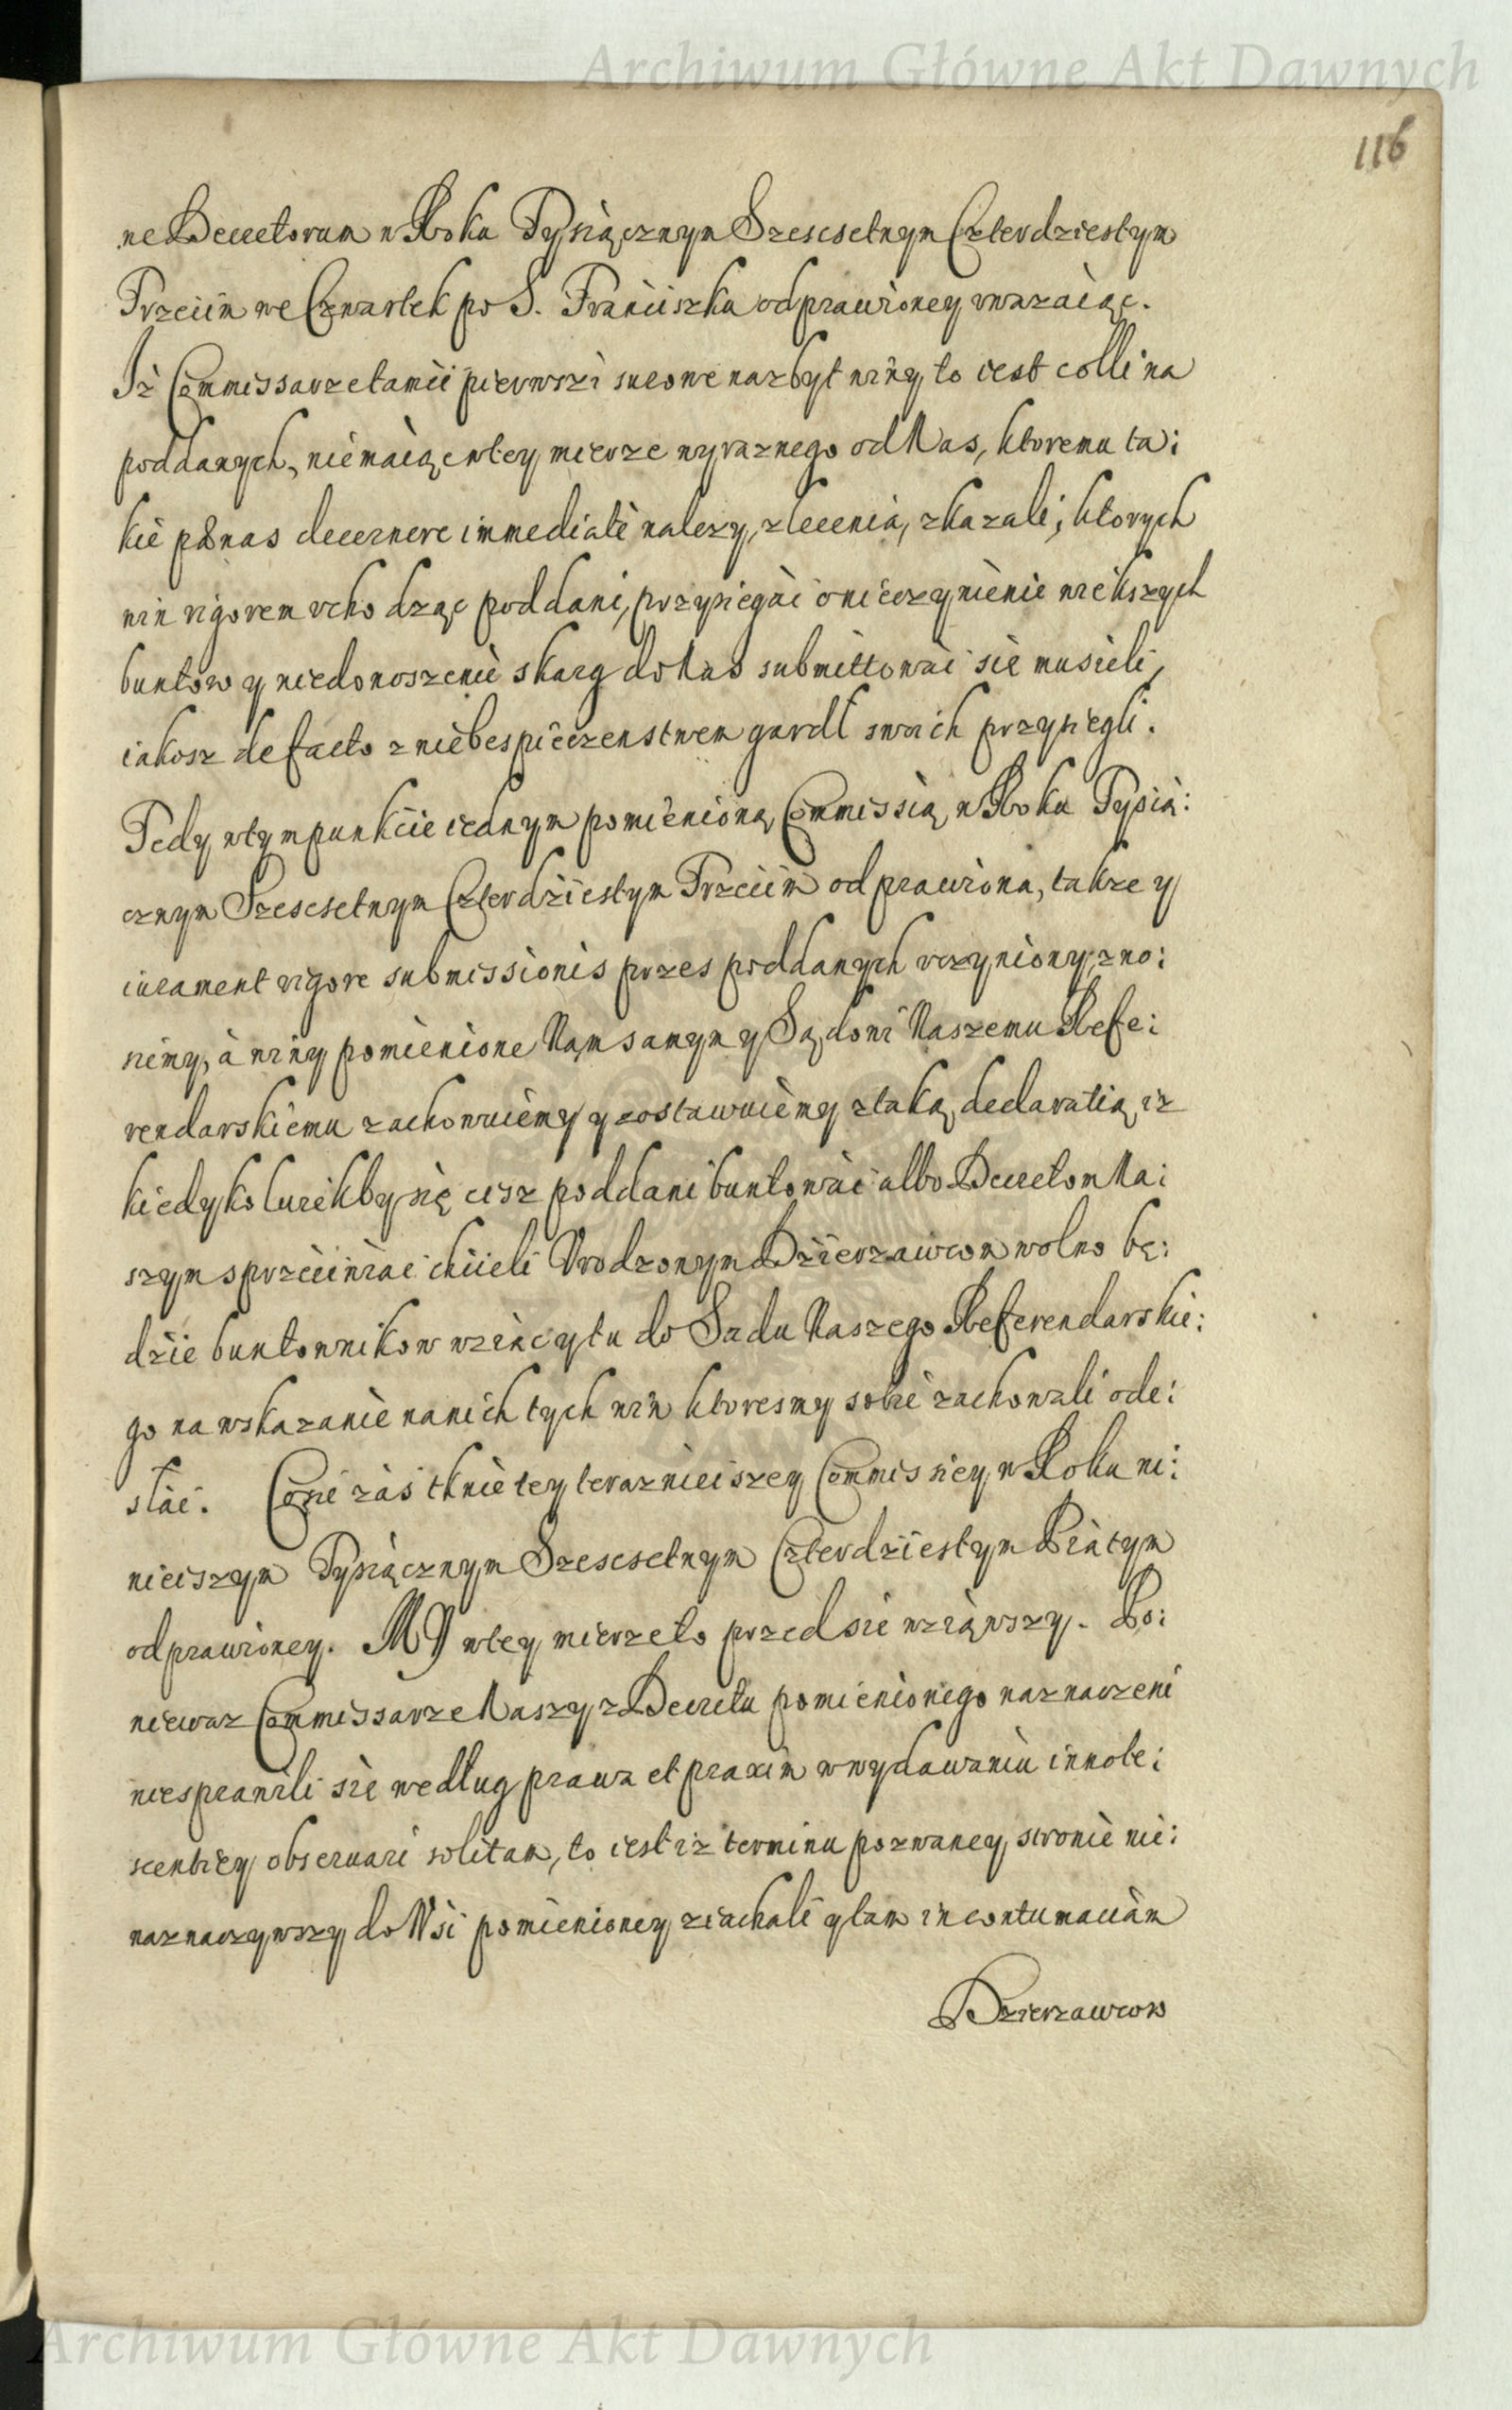 Archiwum Główne Akt Dawnych
116
ne Decretorum w Roku Tysiącznym Szescsetnym Czterdziestym
Trzecim we Czwartek po S. Franciszku odprawioney uwazaiąc.
Iż Commissarze tamci pierwszi surowe nazbyt winy, to iest colli na
poddanych, niemaiąc wtey mierze wyraznego od Nas, ktoremu ta:
kie pœnas decernere immediate nalezy, zlecenia, skazali, ktorych
win rigorem uchodząc poddani, przysiegać o nieczynienie wiekszych
buntow y niedonoszenie skarg do Nas submittować się musieli,
iakosz de facto z niebespieczenstwem gardł swoich przysiegli.
Tedy wtym punkcie iednym pomienioną Commissią w Roku Tysią:
cznym Szescsetnym Czterdziestym Trzecim odprawioną, także y
iurament rigore submissionis przes poddanych uczyniony, zno:
simy, à winy pomienione Nam samym y Sądowi Naszemu Refe:
rendarskiemu zachowuiemy y zostawuiemy z taką declaratią, iz
kiedykolwiekby się cisz poddani buntować albo Decretom Na:
szym sprzeciwiać chcieli Urodzonym Dzierzawcom wolno bę:
dzie buntownikow wziąc y tu do Sadu Naszego Referendarskie:
go na wskazanie nanich tych win ktoresmy sobie zachowali ode:
słać. Cosie zás tknie tey teraznieiszey Commissiey w Roku ni:
nieiszym Tysiącznym Szescsetnym Czterdziestym Piątym
odprawioney. MY wtey mierze to przed sie wziąwszy. Po:
niewaz Commissarze Naszy z Decretu pomienionego naznaczeni
niesprawili sie według prawa et praxim w wydawaniu innote:
scentiey observari solitam, to iest iz terminu pozwaney stronie nie:
naznaczywszy do Wsi pomienioney ziachali y tam in contumaciam
Dzierzawcow
Archiwum Główne Akt Dawnych